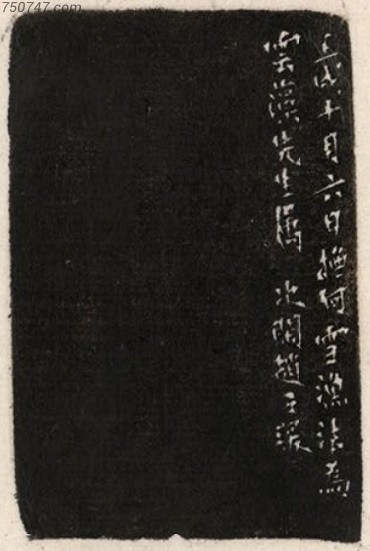 750747.com
壬戌十月六日撫何雪漁法為
雲漢先生屬 次閑趙之琛